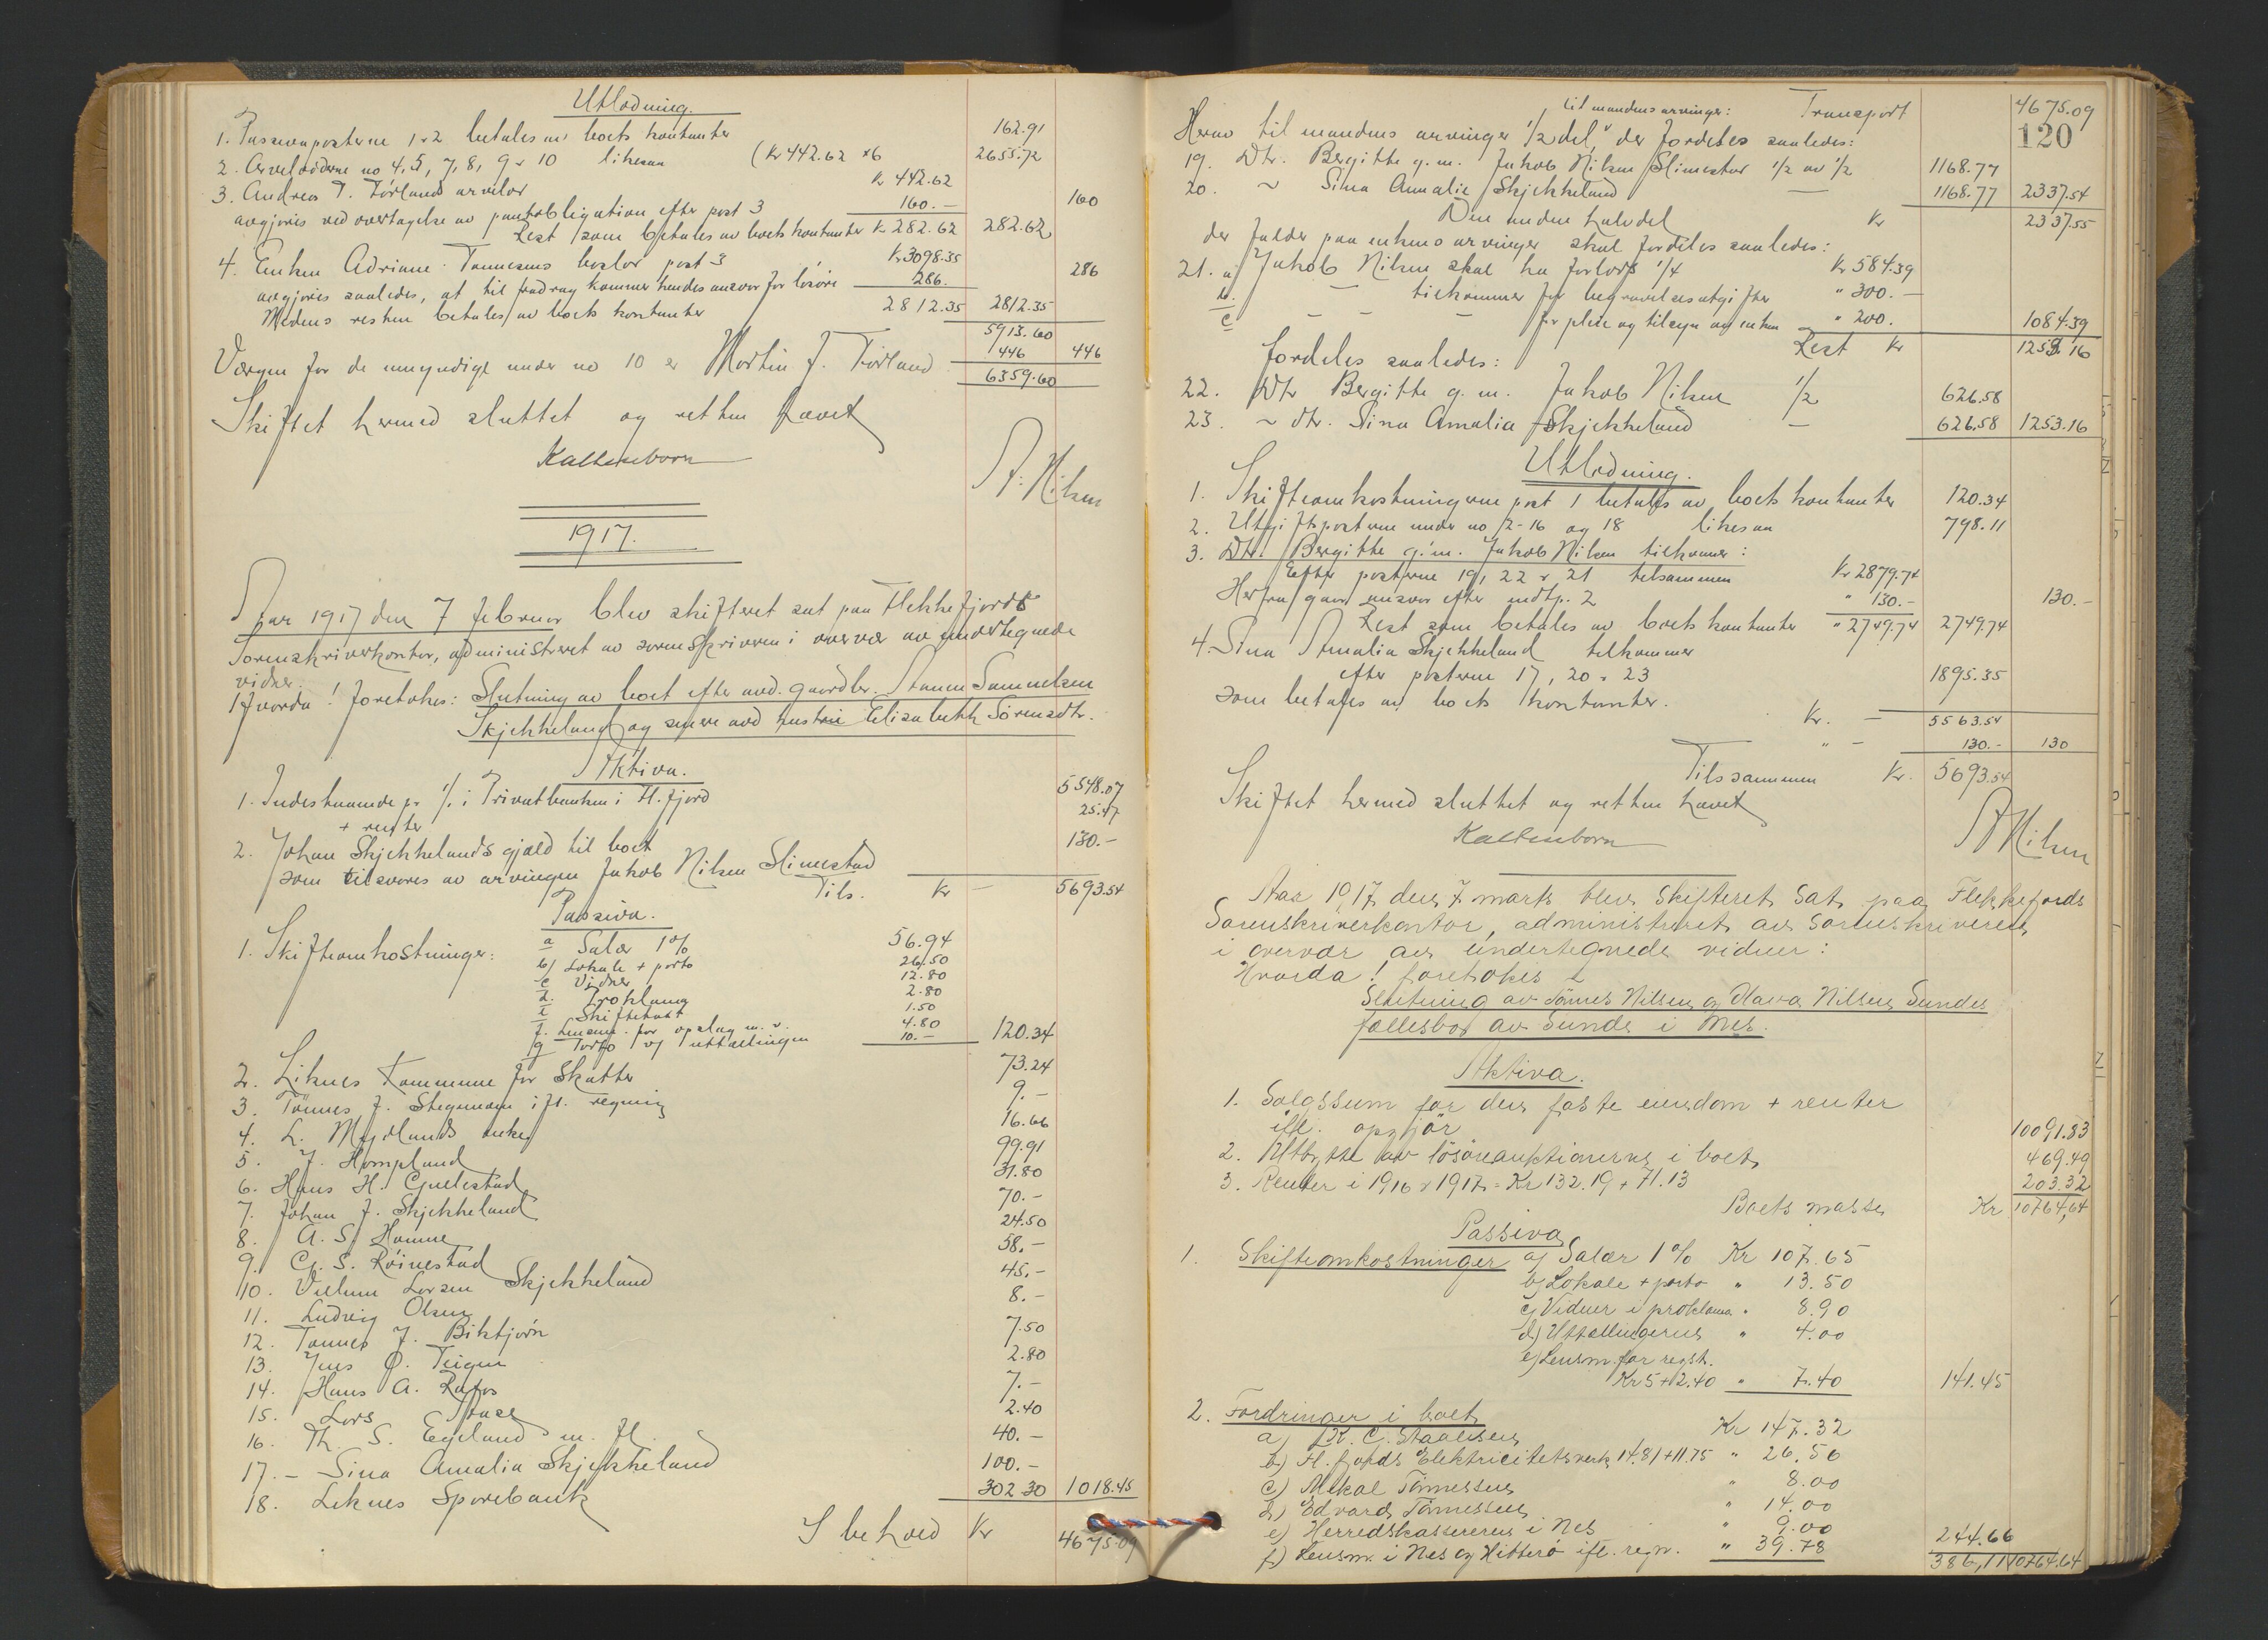 Utlodning.
1. Passivaposterne 1-2 betales av boets kontanter 162.91
2. Arvelodderne no 4, 5, 7, 8, 9 & 10 likesaa (Kr 442.62 × 6 2655.72
3. Andreas T. Förlands arvelod Kr 442.62
avgjöres ved overtagelse av pantobligation efter post 3 160.— 160
Rest som betales av boets kontanter Kr 282.62 282.62
4. Enken Adriane Tonnesens boslod post 3 Kr 3098.35
avgjöres saaledes, at til fradrag kommer hendes ansvar for lösöre 286. 286
Medens resten betales av boets kontanter 2812.35 2812.35
5913.60
446 446
Værgen for de umyndige under no 10 er Martin J. Förland 6359.60
Skiftet hermed sluttet og retten hævet
Kaltenborn
A. Nilsen
1917.
Aar 1917 den 7 februar blev skifteret sat paa Flekkefjords
Sorenskriverkontor, administreret av sorenskriveren i overvær av undertegnede
vidner.
Hvorda! foretokes: Slutning av boet efter avd. gaardbr. Stener Samuelsen
Skjekkeland og senere avd hustru Elisabeth Sörensdtr.
Aktiva.
1. Indestaaende pr % i Privatbanken i Fl.fjord 5548.07
+ renter 25.47
2. Johan Skjekkelands gjæld til boet 130.—
som tilsvares av arvingen Jakob Nilsen Slimestad
Tils. Kr — 5693.54
Passiva.
1. Skifteomkostninger: a Salær 1% 56.94
b) Lokale + porto 26.50
c Vidner 12.80
d. Proklama 2.80
e Skiftetakt 1.50
f. Lensm. for opslag m.v. 4.80
g Porto v/ uttællingen 10.— 120.34
2. Liknes kommune for Skatter 73.24
3. Tönnes J. Stegemoen ifl. regning 9.—
4. L. Mydlands enke 16.66
5. J. Hompland 99.91
6. Hans H. Gullestad 31.80
7. Johan J. Skjekkeland 70.—
8. A. S. Homme 24.50
9. G. S. Röinestad 58.—
10. Villum Larsen Skjekkeland 45.—
11. Ludvig Olsen 8.—
12. Tonnes J. Birktjörn 7.50
13. Jens O. Teigen 2.80
14. Hans A. Rafos 7.—
15. Lars Aase 2.40
16. Th. S. Egeland m. fl. 40.—
17. — Sina Amalia Skjekkeland 100.—
18. Liknes Sparebank 302.30 1018.45
I behold Kr 4675.09
til mandens arvinger: Transport 4675.09
120
Herav til mandens arvinger 1/2 del, der fordeles saaledes:
19. Dtr. Bergitte g. m. Jakob Nilsen Slimestad 1/2 av 1/2 1168.77
20. ~ Sina Amalie Skjekkeland — 1168.77 2337.54
Den anden halvdel Kr 2337.55
der falder paa enkens arvinger skal fordeles saaledes:
21. a) Jakob Nilsen skal ha forlods 1/4 Kr 584.39
b. — tilkommer for begravelsesutgifter " 300.—
c — — — for pleie og tilsyn av enken " 200. 1084.39
Rest Kr 1253.16
fordeles saaledes:
22. Dtr Bergitte g. m. Jakob Nilsen 1/2 626.58
23. ~ dtr. Sina Amalia Skjekkeland — 626.58 1253.16
Utlodning.
1. Skifteomkostningerne post 1 betales av boets kontanter 120.34
2. Utgiftsposterne under no 2-16 og 18 likesaa 798.11
3. Dtr. Bergitte g. m. Jakob Nilsen tilkommer:
Efter posterne 19, 22 & 21 tilsammen Kr 2879.74
Herfra gaar ansvar efter indtp. 2 " 130.— 130.—
Rest som betales av boets kontanter " 2749.74 2749.74
4. Sina Amalia Skjekkeland tilkommer
efter posterne 17, 20 & 23 1895.35
som betales av boets kontanter.
Kr. — 5563.54
" — 130.— 130
Tilssammen Kr. 5693.54
Skiftet hermed sluttet og retten hævet
Kaltenborn
A Nilsen
Aar 1917 den 7 marts blev Skifteret sat paa Flekkefjords
Sorenskriverkontor, administreret av sorenskriveren
i overvær av undertegnede vidner:
Hvorda! foretokes
Slutning av Tönnes Nilsen og Olava Nilsen Sundes
fællesbo av Sunde i Nes.
Aktiva.
1. Salgssum for den faste eiendom + renter
ifl. opgjör 10091.83
2. Utbytte av lösöreauktionerne i boet 469.49
3. Renter i 1916 & 1917 = Kr 132.19 + 71.13 203.32
Boets masse Kr 10764,64
Passiva
1. Skifteomkostninger a) Salær 1% Kr 107.65
b) Lokale + porto " 13.50
c) Vidner i proklama " 8.90
d) Uttællingerne " 4.00
e) Lensm. for regstr.
Kr 5 + 2.40 " 7.40 141.45
2. Fordringer i boet
a) K. C. Staalesen Kr 147.32
b) Fl.fjords Elektricitetsverk 14.81 + 11.75 " 26.56
c) Mikal Tönnessen " 8.00
d) Edvard Tönnessen " 14.00
e) Herredskassereren i Nes " 9.00
f) Lensm. i Nes og Hitterö ifl. regn. " 39.78 244.66
386,11 10764.64